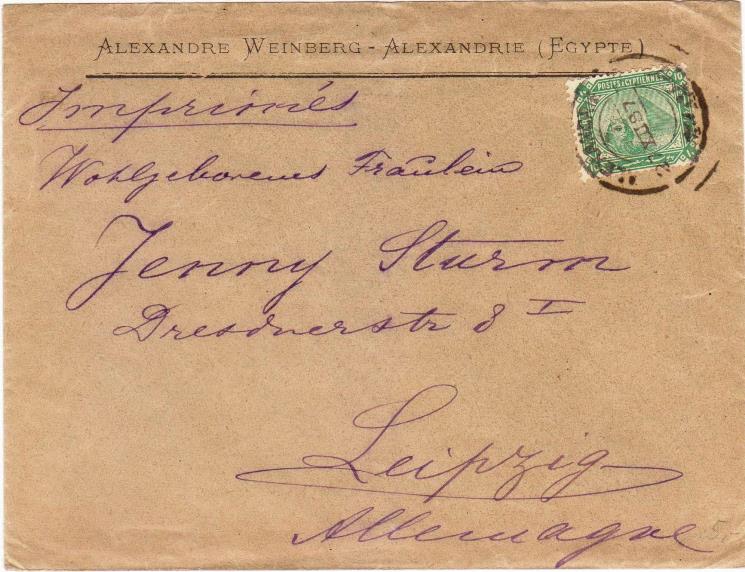 ALEXANDRE WEINBERG - ALEXANDRIE (EGYPTE)
POSTES EGYPTIENNES
XII 97
Imprimés
Wohlgeborenes Fräulein
Jenny Sturm
Dresdnerstr 8 I
Leipzig
Allemagne
5,-